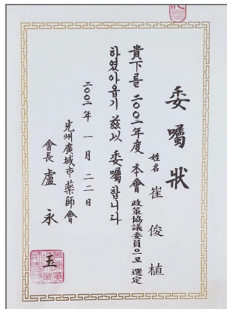 委囑狀
姓名 崔俊植
貴下를 二〇〇二年度 本會 政策協議委員으로 選定
하였아옵기 玆以 委囑합니다
二〇〇二年 一月 二二日
光州廣域市藥師會
會長 盧永